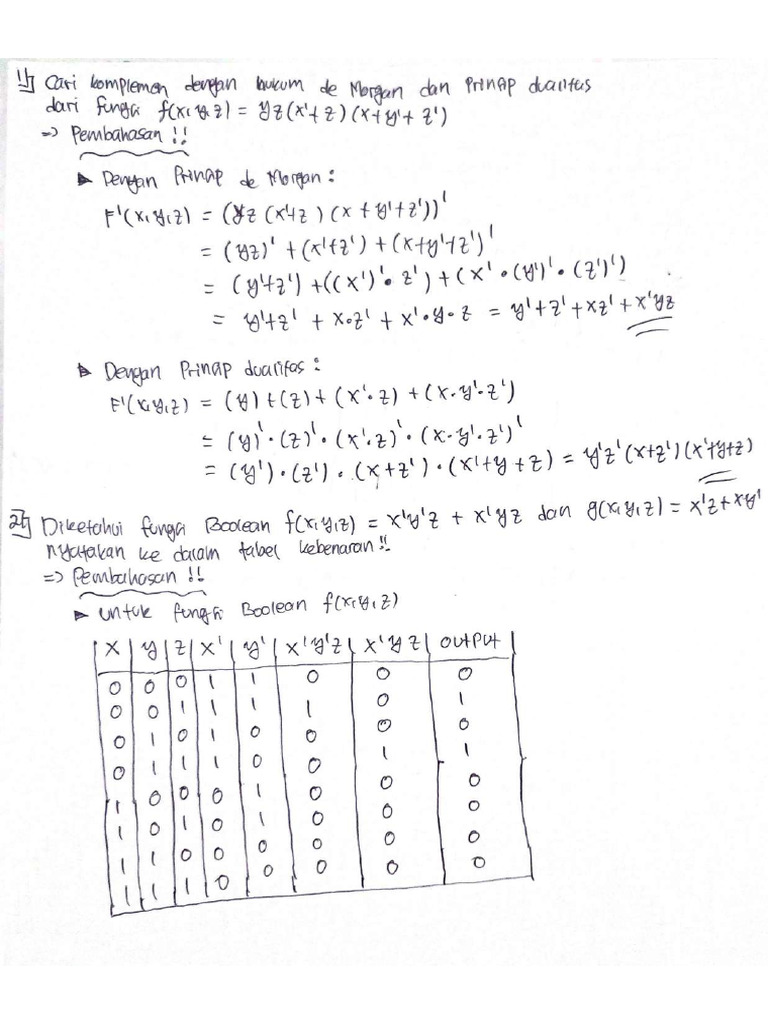 1) Cari komplemen dengan hukum de Morgan dan Prinsip dualitas
dari fungsi f(x,y,z) = yz(x'+z)(x+y'+z')
=> Pembahasan !!
▶ Dengan Prinsip de Morgan :
F'(x,y,z) = (yz (x'+z) (x + y'+z'))'
= (yz)' + (x'+z') + (x+y'+z')'
= (y'+z') + ((x')'• z') + (x' • (y')' • (z')')
= y'+z' + x•z' + x'•y•z = y'+z'+xz'+x'yz
▶ Dengan Prinsip dualitas :
F'(x,y,z) = (y)+(z)+(x'•z) + (x•y'•z')
= (y)'•(z)'•(x'•z)'•(x•y'•z')'
= (y')•(z')•(x+z')•(x'+y+z) = y'z'(x+z')(x'+y+z)
2) Diketahui fungsi Boolean f(x,y,z) = x'y'z + x'yz dan g(x,y,z) = x'z+xy'
nyatakan ke dalam tabel kebenaran!!
=> Pembahasan !!
▶ untuk fungsi Boolean f(x,y,z)
x | y | z | x' | y' | x'y'z | x'yz | OUTPUT
0 0 0 1 1 0 0 0
0 0 1 1 1 1 0 1
0 1 0 1 0 0 0 0
0 1 1 1 0 0 1 1
1 0 0 0 1 0 0 0
1 0 1 0 1 0 0 0
1 1 0 0 0 0 0 0
1 1 1 0 0 0 0 0